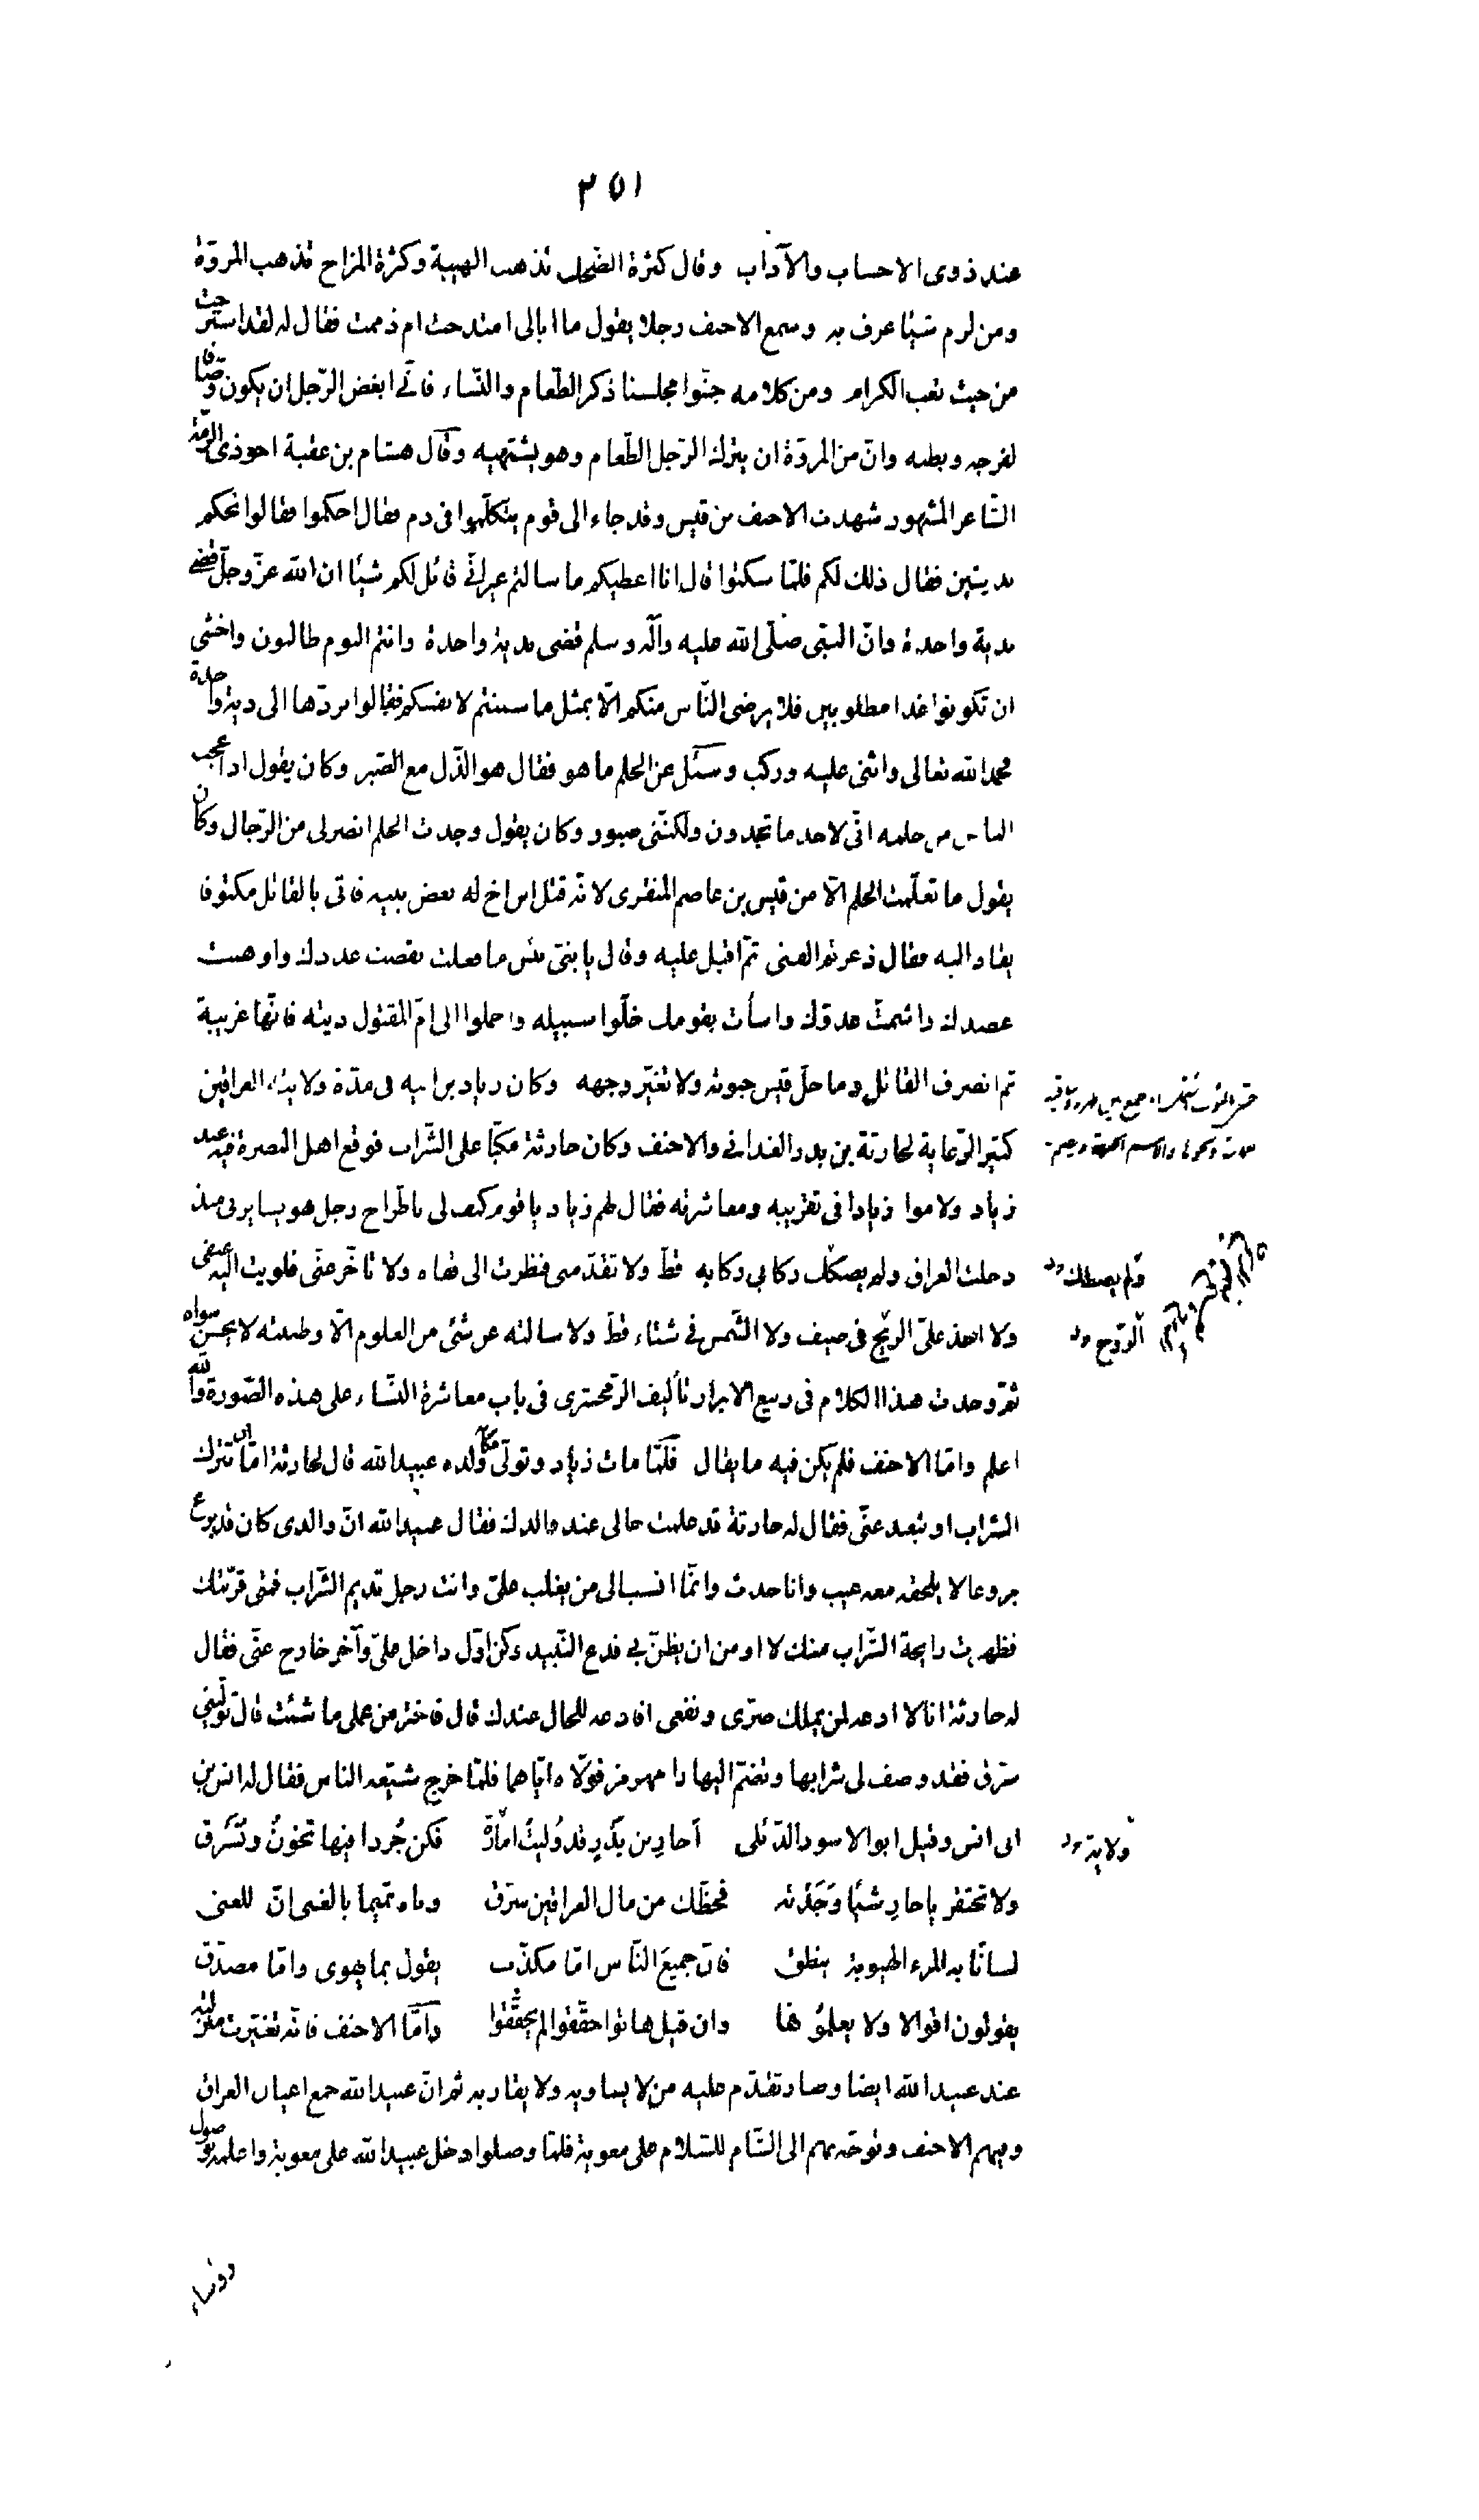 ٢٥١
عند ذوى الاحساب والآداب وقال كثرة الضحك تذهب الهيبة وكثرة المزاح تذهب المروّة
ومن لزم شيئا عرف به وسمع الاحنف رجلا يقول ما ابالى امتدحت ام ذممت فقال له لقد استرحت
من حيث تعب الكرام ومن كلامه جنّبوا مجلسنا ذكر الطّعام والنّساء فانّى ابغض الرّجل ان يكون وصّافا
لفرجه وبطنه وانّ من المروّة ان يترك الرّجل الطّعام وهو يشتهيه وقال هشام بن عقبة اخو ذى الرمّة
الشّاعر المشهور شهدت الاحنف بن قيس وقد جاء الى قوم يتكلّموا فى دم فقال احكموا فقالوا نحكم
بديتين فقال ذلك لكم فلمّا سكتوا قال انا اعطيكم ما سالتم غير انّى قائل لكم شيئا ان الله عزّ وجلّ قضى
بدية واحدة وانّ النبّى صلّى الله عليه وآله وسلم قضى بدية واحدة وانتم اليوم طالبون واخشى
ان تكونوا غدا مطلوبين فلا يرضى النّاس منكم الّا بمثل ما سننتم لانفسكم فقالوا نردّها الى دية واحدة
فحمد الله تعالى واثنى عليه وركب وسئل عن الحلم ما هو فقال هو الذّل مع الصّبر وكان يقول اذا عجب
الناس من حلمه انّى لاجد ما تجدون ولكنّنى صبور وكان يقول وجدت الحلم انصر لى من الرّجال وكان
يقول ما تعلّمت الحلم الّا من قيس بن عاصم المنقرى لانّه قتل ابن اخ له بعض بنيه فاتى بالقاتل مكتوفا
يقاد اليه فقال ذعرتم الفتى ثمّ اقبل عليه وقال يا بنىّ بئس ما فعلت نقصت عددك واوهنت
عضدك واشمتّ عدوّك واسأت بقومك خلّوا سبيله واحملوا الى امّ المقتول ديته فانّها غريبة
ثم انصرف القاتل وما حلّ قيس حبوته ولا تغيّر وجهه وكان زياد بن ابيه فى مدّة ولايته العراقين
كثير الرّعاية لحارثة بن بدر الغدانى والاحنف وكان حارثة مكبّا على الشّراب فوقع اهل البصرة فيه عند
زياد ولاموا زيادا فى تقريبه ومعاشرته فقال لهم زياد يا قوم كيف لى باطّراح رجل هو يسايرنى منذ
دخلت العراق ولم يصكك ركابى ركابه قطّ ولا تقدّمنى فنظرت الى قفاه ولا تاخّر عنّى فلويت اليه عنقى
ولا اخذ علىّ الرّيح فى صيف ولا الشّمس فى شتاء قطّ ولا سالته عن شئ من العلوم الّا وظننته لا يحسن سواه
ثمّ وجدت هذا الكلام فى ربيع الابرار تأليف الزمخشرى فى باب معاشرة النّساء على هذه الصّورة والله
اعلم وامّا الاحنف فلم يكن فيه ما يقال فلمّا مات زياد وتولّى مكانه ولده عبيد الله قال لحارثة امّا ان تترك
الشراب او تبعد عنّى فقال له حارثة قد علمت حالى عند والدك فقال عبيد الله انّ والدى كان قد برع
بروعا لا يلحقه معه عيب وانا حدث وانّما انسب الى من يغلب علىّ وانت رجل تديم الشّراب فمتى قرّبتك
فظهرت رايحة الشّراب منك لا اومن ان يظنّ بى فدع النّبيذ وكن اوّل داخل علىّ وآخر خارج عنّى فقال
له حارثة انا لا ادعه لمن يملك ضرّى ونفعى افادعه للحال عندك قال فاختر من عملى ما شئت قال تولّينى
سرّق فقد وصف لى شرابها وتضمّ اليها رامهرمز فولّاه ايّاهما فلمّا خرج شيّعه الناس فقال له انس بن
ابى انس وقيل ابو الاسود الدّئلى أحار بن بَدْرٍ قد وُلّيتَ امأرَةً فكن جُرذا فيها تخونُ وتَسْرق
ولا تحتقر يا حار شيئا وَجَدْته فحظّك من مال العراقين سرّق وباه تميما بالغنى انّ للغنى
لسانًا به المرء الهيوبة ينطق فانّ جميعَ النّاس امّا مكذّب يقول بما يهوى وامّا مصدّق
يقولون اقوالا ولا يعلمُونها وان قيل هاتوا حقّقوا لم يحقّقوا وامّا الاحنف فانّه تغيّرت منزلته
عند عبيد الله ايضا وصار تقدّم عليه من لا يساويه ولا يقاربه ثم انّ عبيد الله جمع اعيان العراق
وفيهم الاحنف وتوجّه بهم الى الشّام للسّلام على معوية فلمّا وصلوا دخل عبيد الله على معوية واعلمه بوصول
ولم يصطك
الرّوح
ولاية
رؤساء